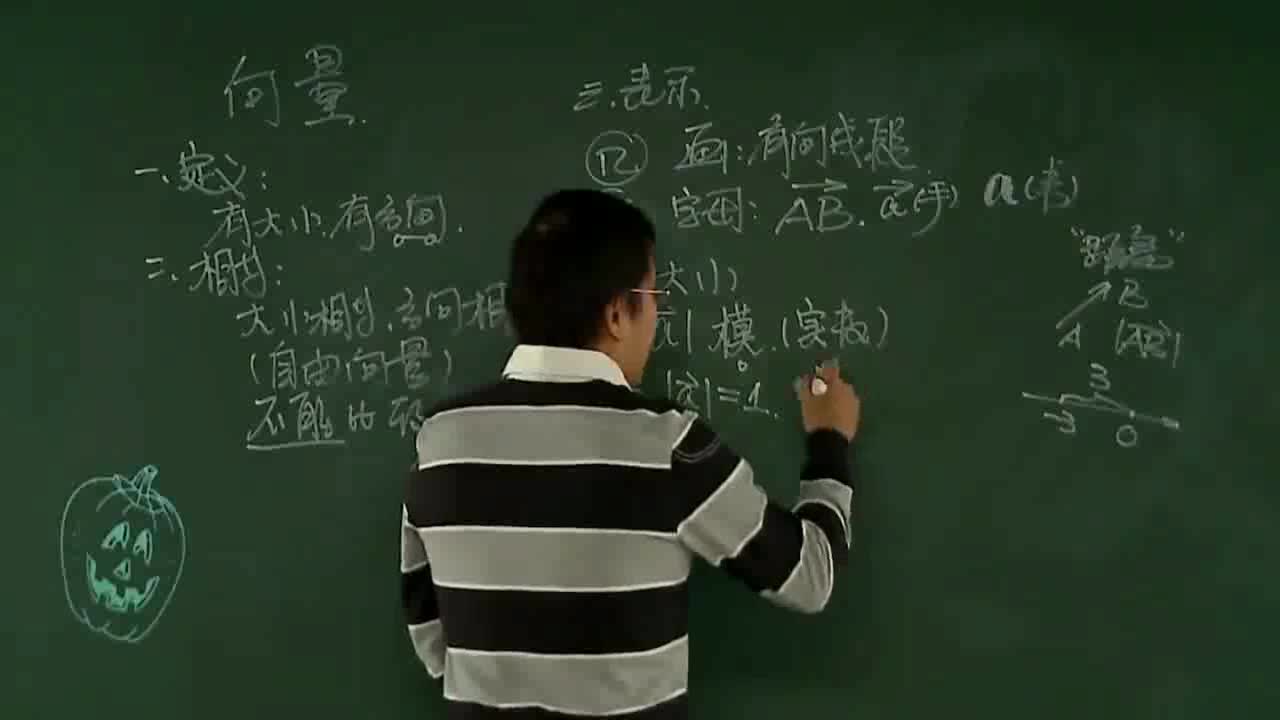 向量.
一、定义:
有大小.有方向.
二、相等:
大小相等.方向相
(自由向量)
不能比
三.表示.
画:有向线段.
字母: AB. a(手) a(书)
大小)
a| 模.(实数)
|a|=1.
"距离"
B
A |AB|
3
-3 0